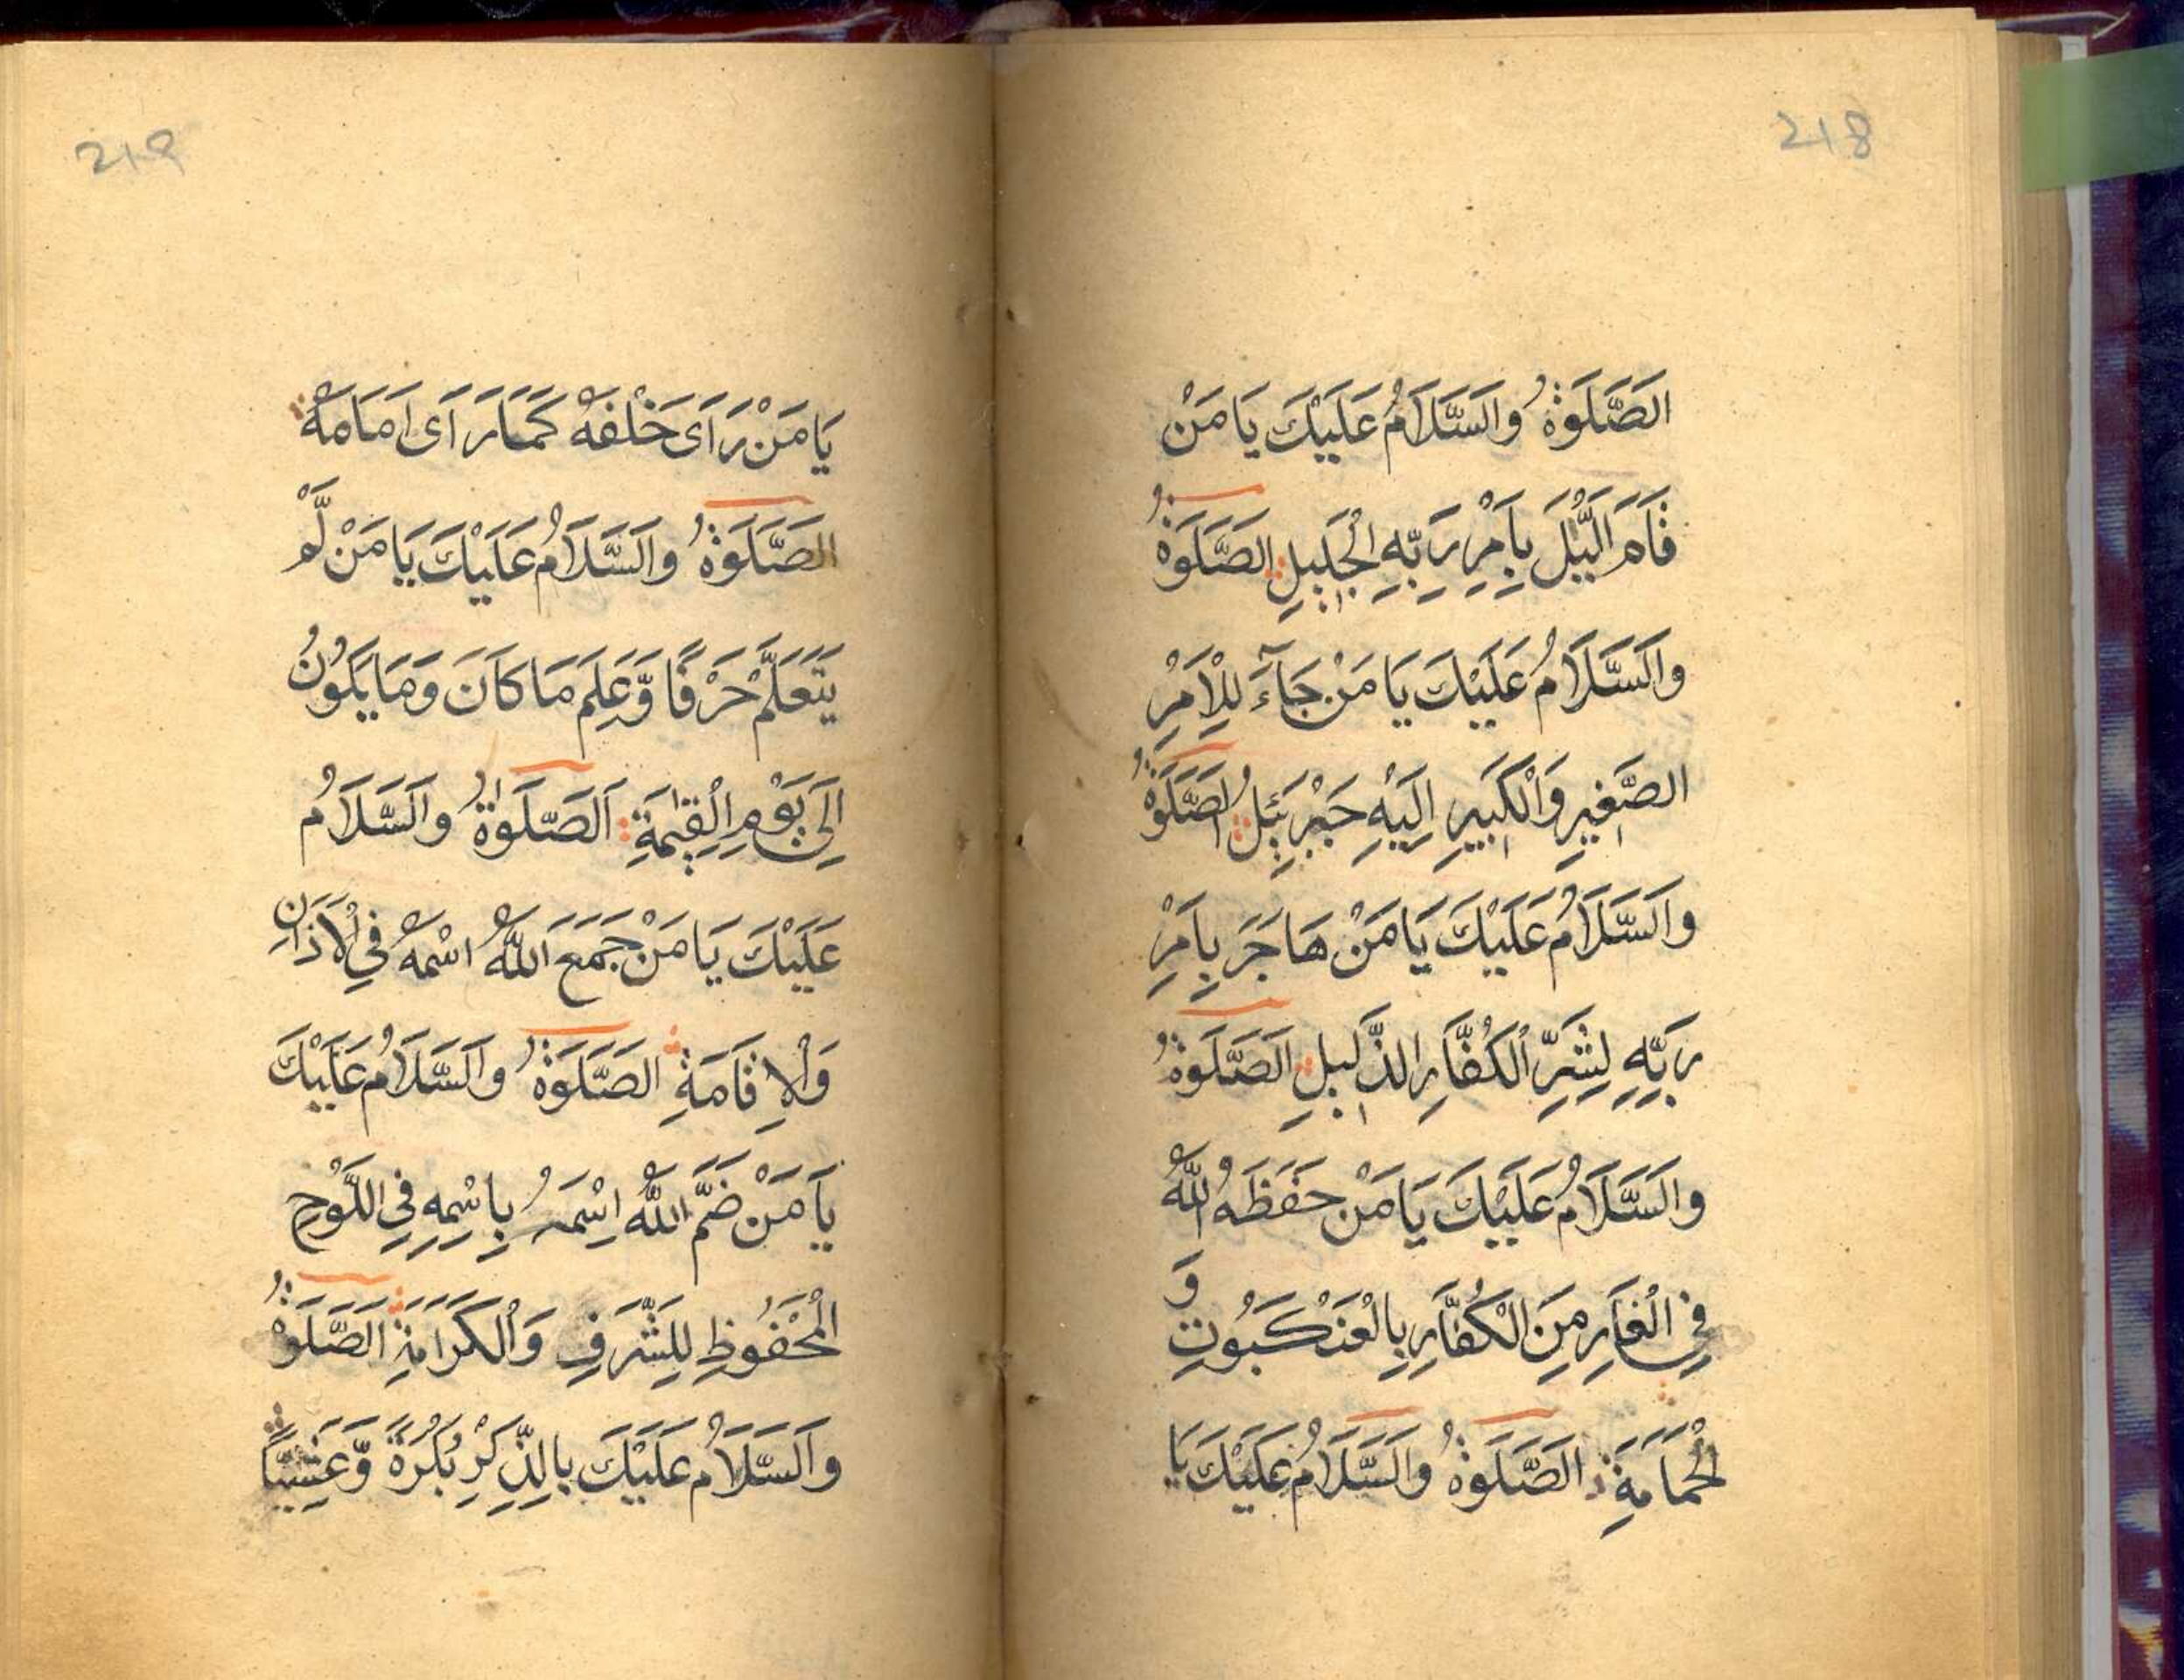 218
الصَّلَوةُ وَالسَّلَامُ عَلَيْكَ يَا مَنْ
قَامَ الَّيْلَ بِاَمْرِ رَبِّهِ الْجَلِيلِ الصَّلَوةُ
وَالسَّلَامُ عَلَيْكَ يَا مَنْ جَآءَ لِلْاَمْرِ
الصَّغِيرِ وَالْكَبِيرِ اِلَيْهِ جَبْرَئِيلُ الصَّلَوةُ
وَالسَّلَامُ عَلَيْكَ يَا مَنْ هَاجَرَ بِاَمْرِ
رَبِّهِ لِشَرِّ الْكُفَّارِ الذَّلِيلِ الصَّلَوةُ
وَالسَّلَامُ عَلَيْكَ يَا مَنْ حَفَظَهُ اللهُ
فِي الْغَارِ مِنَ الْكُفَّارِ بِالْعَنْكَبُوتِ وَ
الْحَمَامَةِ الصَّلَوةُ وَالسَّلَامُ عَلَيْكَ يَا
219
يَا مَنْ رَاَى خَلْفَهُ كَمَا رَاَى اَمَامَهُ
الصَّلَوةُ وَالسَّلَامُ عَلَيْكَ يَا مَنْ لَّمْ
يَتَعَلَّمْ حَرْفًا وَّعَلِمَ مَا كَانَ وَمَا يَكُونُ
اِلَى يَوْمِ الْقِيٰمَةِ اَلصَّلَوٰةُ وَالسَّلَامُ
عَلَيْكَ يَا مَنْ جَمَعَ اللهُ اسْمَهُ فِي الْاَذَانِ
وَالْاِقَامَةِ الصَّلَوةُ وَالسَّلَامُ عَلَيْكَ
يَا مَنْ ضَمَّ اللهُ اِسْمَهُ بِاسْمِهِ فِي اللَّوْحِ
الْمَحْفُوظِ لِلشَّرَفِ وَالْكَرَامَةِ الصَّلَوةُ
وَالسَّلَامُ عَلَيْكَ بِالذِّكْرِ بُكْرَةً وَّعَشِيًّا